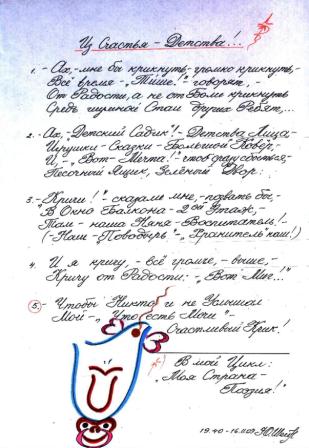 Из Счастья - Детства!..
1. - Ах, - мне бы крикнуть - громко крикнуть, -
Всё время -, "Тише!" - говорят, -
От Радости, а не от Боли крикнуть
Средь тишины Спаи других Ребят,...
2. - Ах, - Детский Садик! - Детства Лица -
Игрушки - Сказки - Большой Ковёр;
И, - "Вот - Мечта! - чтоб сбыться -
Песочный Ящик, Зелёный Двор:
3. - Кричи!" - сказали мне, - позвать бы, -
В Окно Балкона - 2ой Этаж, -
Там - наша Няня - Воспитатель! -
(- Наш - Поводырь" -, "Хранитель наш!)
4. И я кричу, - всё громче, - выше, -
Кричу от Радости: -, "Вот Мне..."
5. - Чтобы Никто и не Услышал
Мой -, "Что есть Мочи" -
Счастливый Крик!
В мой Цикл:
"Моя Страна -
Поэзия!"
19.40 - 16.11.02